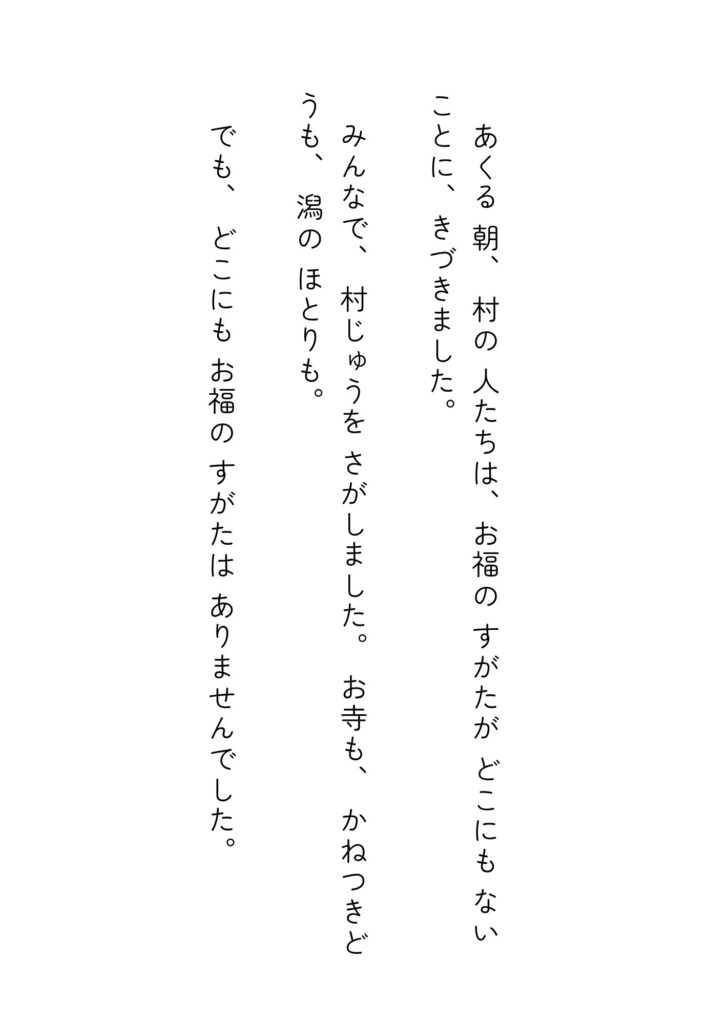 あくる 朝、 村の 人たちは、 お福の すがたが どこにも ない
ことに、 きづきました。
みんなで、 村じゅうを さがしました。 お寺も、 かねつきど
うも、 潟の ほとりも。
でも、 どこにも お福の すがたは ありませんでした。